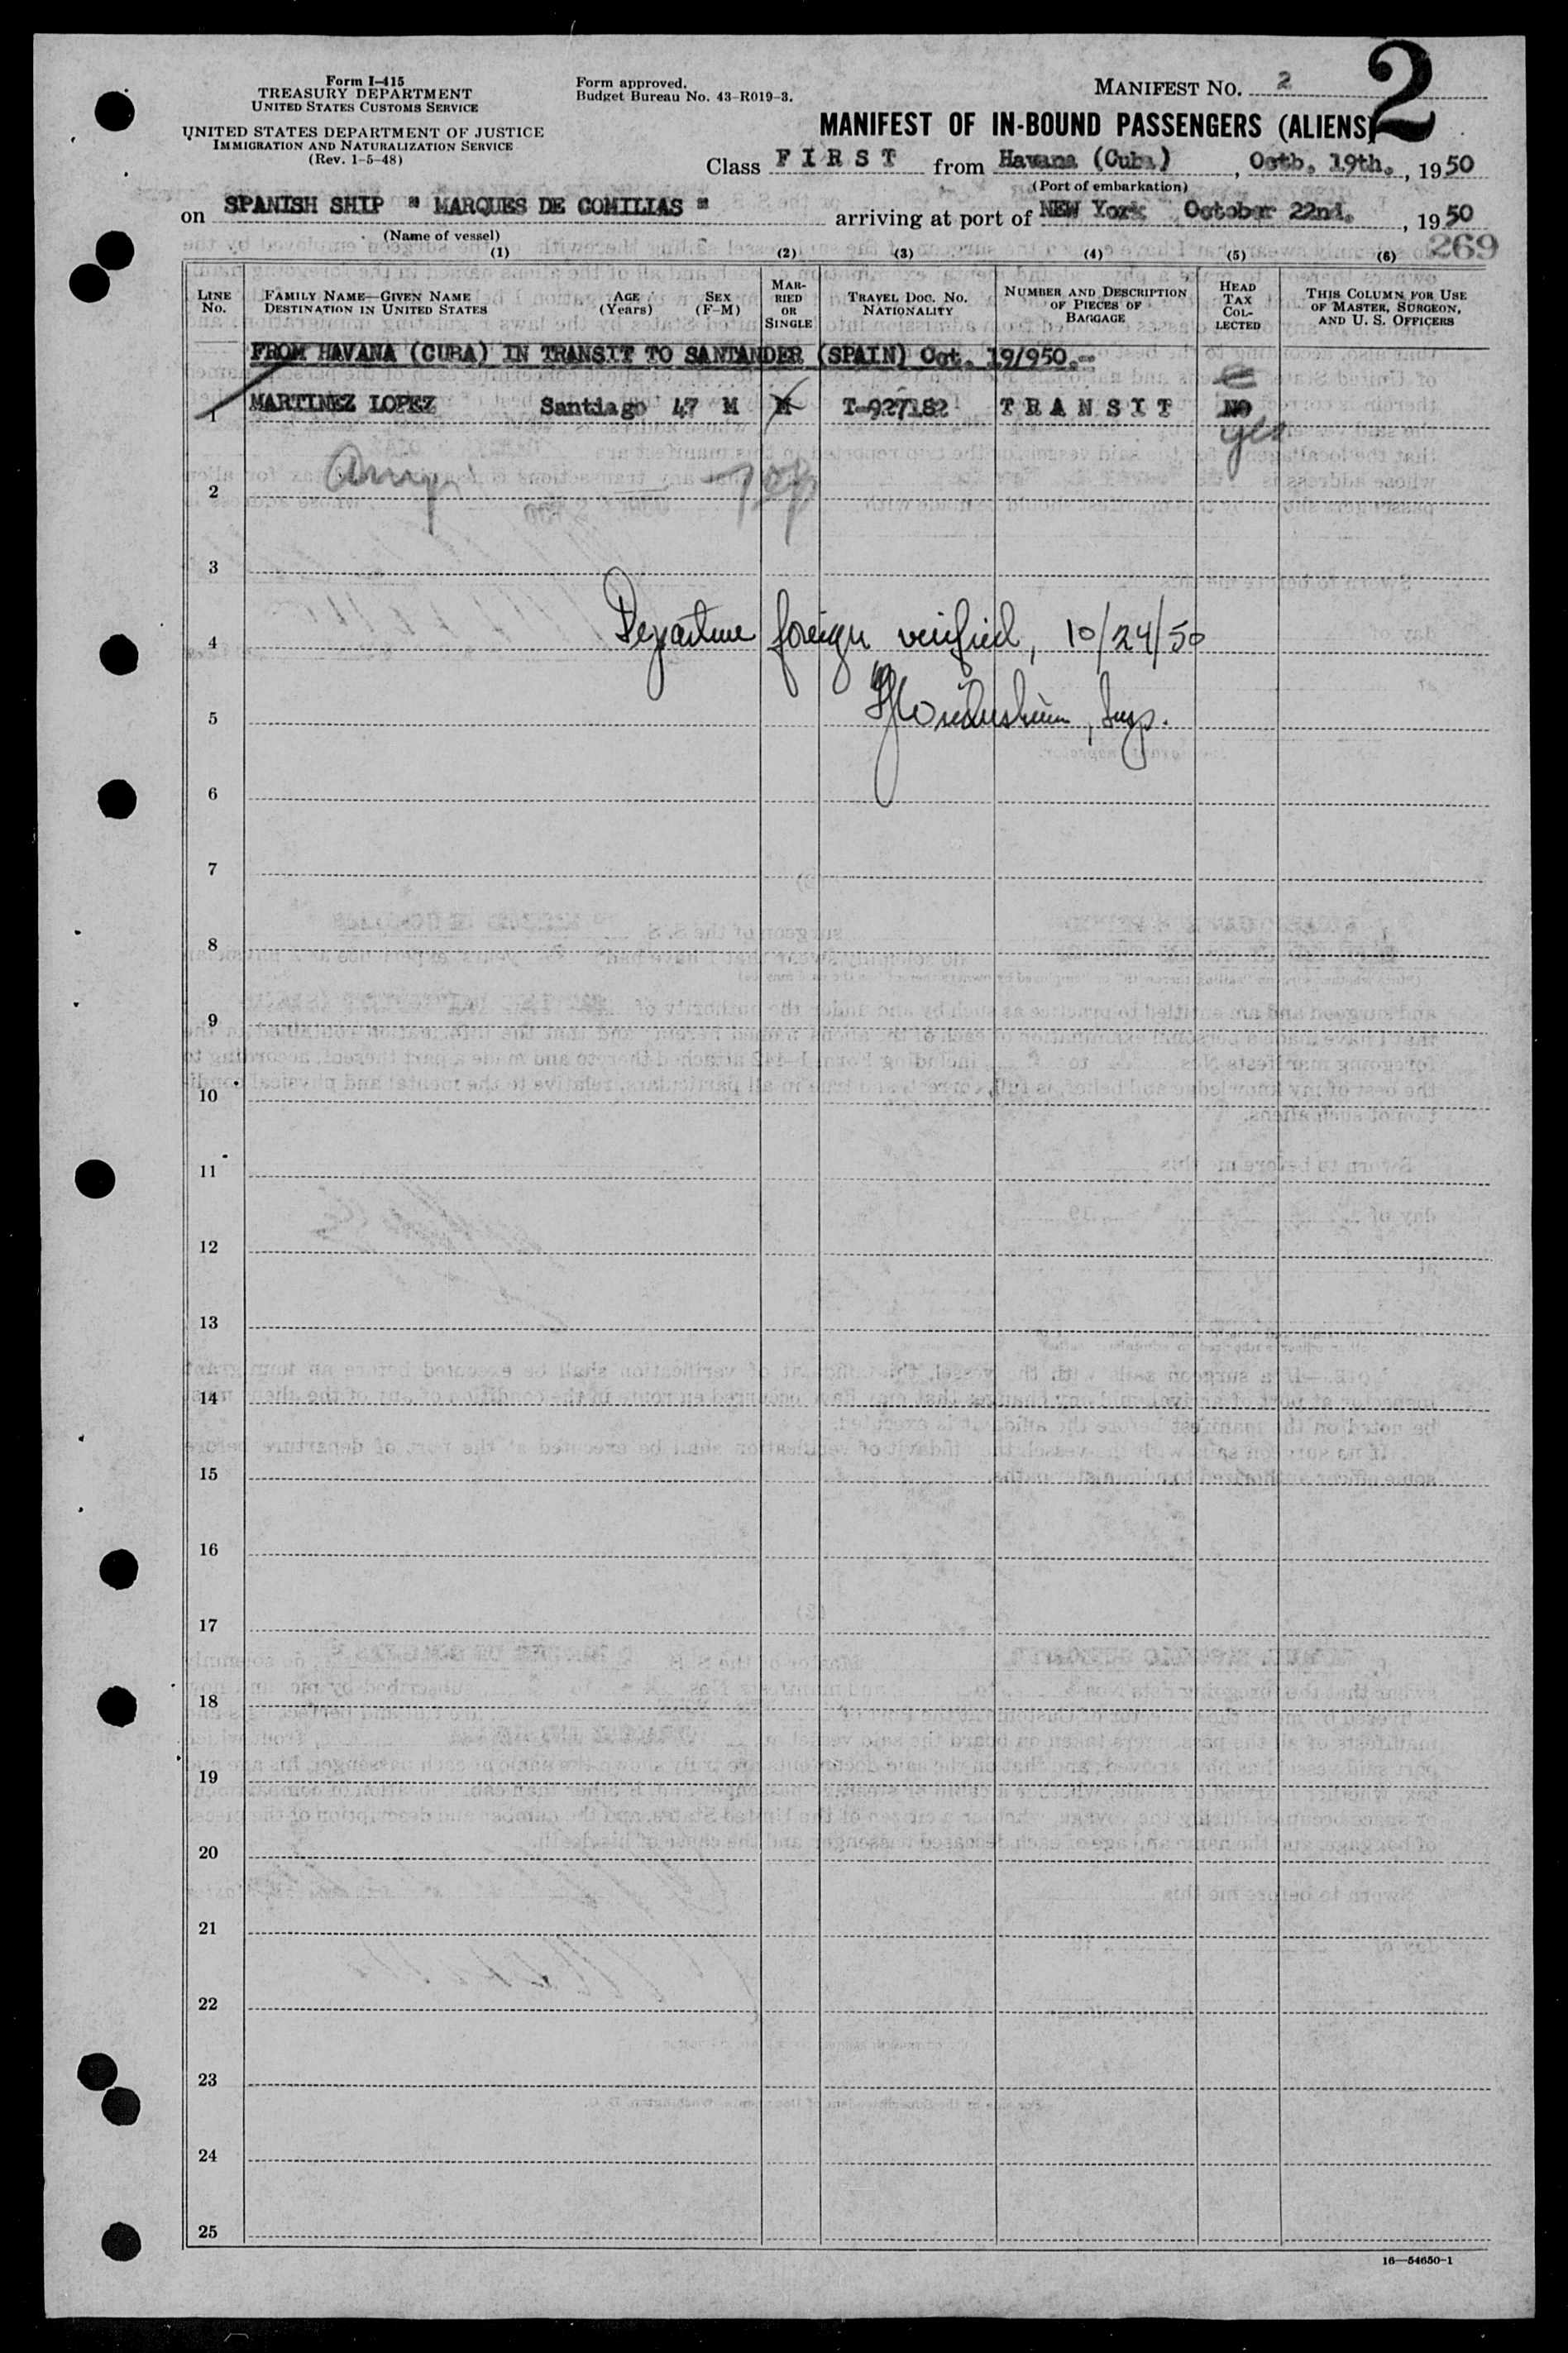 Form I-415
TREASURY DEPARTMENT
UNITED STATES CUSTOMS SERVICE
UNITED STATES DEPARTMENT OF JUSTICE
IMMIGRATION AND NATURALIZATION SERVICE
(Rev. 1-5-48)
Form approved.
Budget Bureau No. 43-R019-3.
MANIFEST NO. 2
2
MANIFEST OF IN-BOUND PASSENGERS (ALIENS)
Class F I R S T from Havana (Cuba), Octb. 19th., 1950
(Port of embarkation)
on SPANISH SHIP " MARQUES DE COMILIAS " arriving at port of NEW York October 22nd., 1950
(Name of vessel)
269
(1) (2) (3) (4) (5) (6)
LINE No. FAMILY NAME—GIVEN NAME DESTINATION IN UNITED STATES AGE (Years) SEX (F-M) MARRIED OR SINGLE TRAVEL DOC. NO. NATIONALITY NUMBER AND DESCRIPTION OF PIECES OF BAGGAGE HEAD TAX COLLECTED THIS COLUMN FOR USE OF MASTER, SURGEON, AND U. S. OFFICERS
FROM HAVANA (CUBA) IN TRANSIT TO SANTANDER (SPAIN) Oct. 19/950.--
1 MARTINEZ LOPEZ Santiago 47 M M T-927182 T R A N S I T NO
yes
2
3
4 Departure foreign verified, 10/24/50
5 Insp.
6
7
8
9
10
11
12
13
14
15
16
17
18
19
20
21
22
23
24
25
16—54650-1